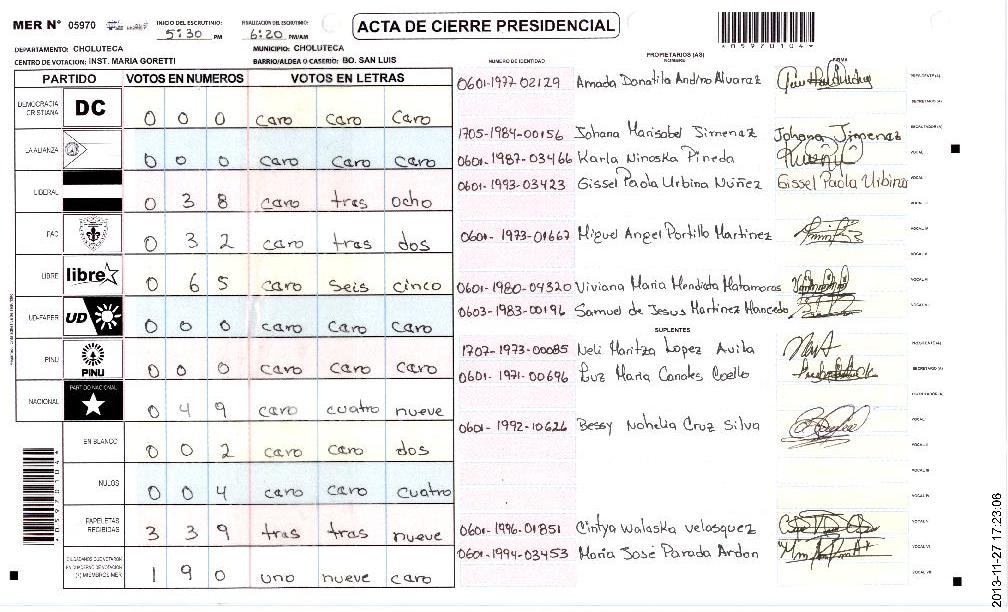 MER N° 05970
INICIO DEL ESCRUTINIO:
5:30 PM
FINALIZACIÓN DEL ESCRUTINIO:
6:20 PM/AM
ACTA DE CIERRE PRESIDENCIAL
*05970104*
DEPARTAMENTO: CHOLUTECA
MUNICIPIO: CHOLUTECA
CENTRO DE VOTACION: INST. MARIA GORETTI
BARRIO/ALDEA O CASERIO: BO. SAN LUIS
PARTIDO VOTOS EN NUMEROS VOTOS EN LETRAS
DEMOCRACIA CRISTIANA DC 0 0 0 caro caro caro
LA ALIANZA 0 0 0 caro caro caro
LIBERAL 0 3 8 caro tras ocho
PAC 0 3 2 caro tras dos
LIBRE libre 0 6 5 caro seis cinco
UD-FAPER UD 0 0 0 caro caro caro
PINU PINU 0 0 0 caro caro caro
NACIONAL PARTIDO NACIONAL 0 4 9 caro cuatro nueve
EN BLANCO 0 0 2 caro caro dos
NULOS 0 0 4 caro caro cuatro
PAPELETAS RECIBIDAS 3 3 9 tras tras nueve
CIUDADANOS QUE VOTARON EN CUADERNO DE VOTACION (+) MIEMBROS MER 1 9 0 uno nueve caro
NUMERO DE IDENTIDAD
PROPIETARIOS (AS)
NOMBRE
FIRMA
0601-1977-02129 Amada Donatila Andino Alvarez PRESIDENTE (A)
SECRETARIO (A)
1705-1984-00156 Johana Marisabel Jimenez Johana Jimenez ESCRUTADOR (A)
0601-1987-03466 Karla Ninoska Pineda VOCAL I
0601-1993-03423 Gissel Paola Urbina Nuñez Gissel Paola Urbina VOCAL II
VOCAL III
0601-1973-01667 Miguel Angel Portillo Martinez VOCAL IV
VOCAL V
0601-1980-04320 Viviana Maria Mendieta Matamoros VOCAL VI
0603-1983-00196 Samuel de Jesus Martinez Mancedo VOCAL VII
SUPLENTES
1707-1973-00085 Neli Maritza Lopez Avila PRESIDENTE (A)
0601-1971-00696 Luz Maria Canales Coello SECRETARIO (A)
ESCRUTADOR (A)
0601-1992-10626 Bessy Nohelia Cruz Silva VOCAL I
VOCAL II
VOCAL III
VOCAL IV
0601-1996-01851 Cintya Walaska Velasquez VOCAL V
0601-1994-03453 Maria José Parada Ardon VOCAL VI
VOCAL VII
*05970104*
2013-11-27 17:23:06